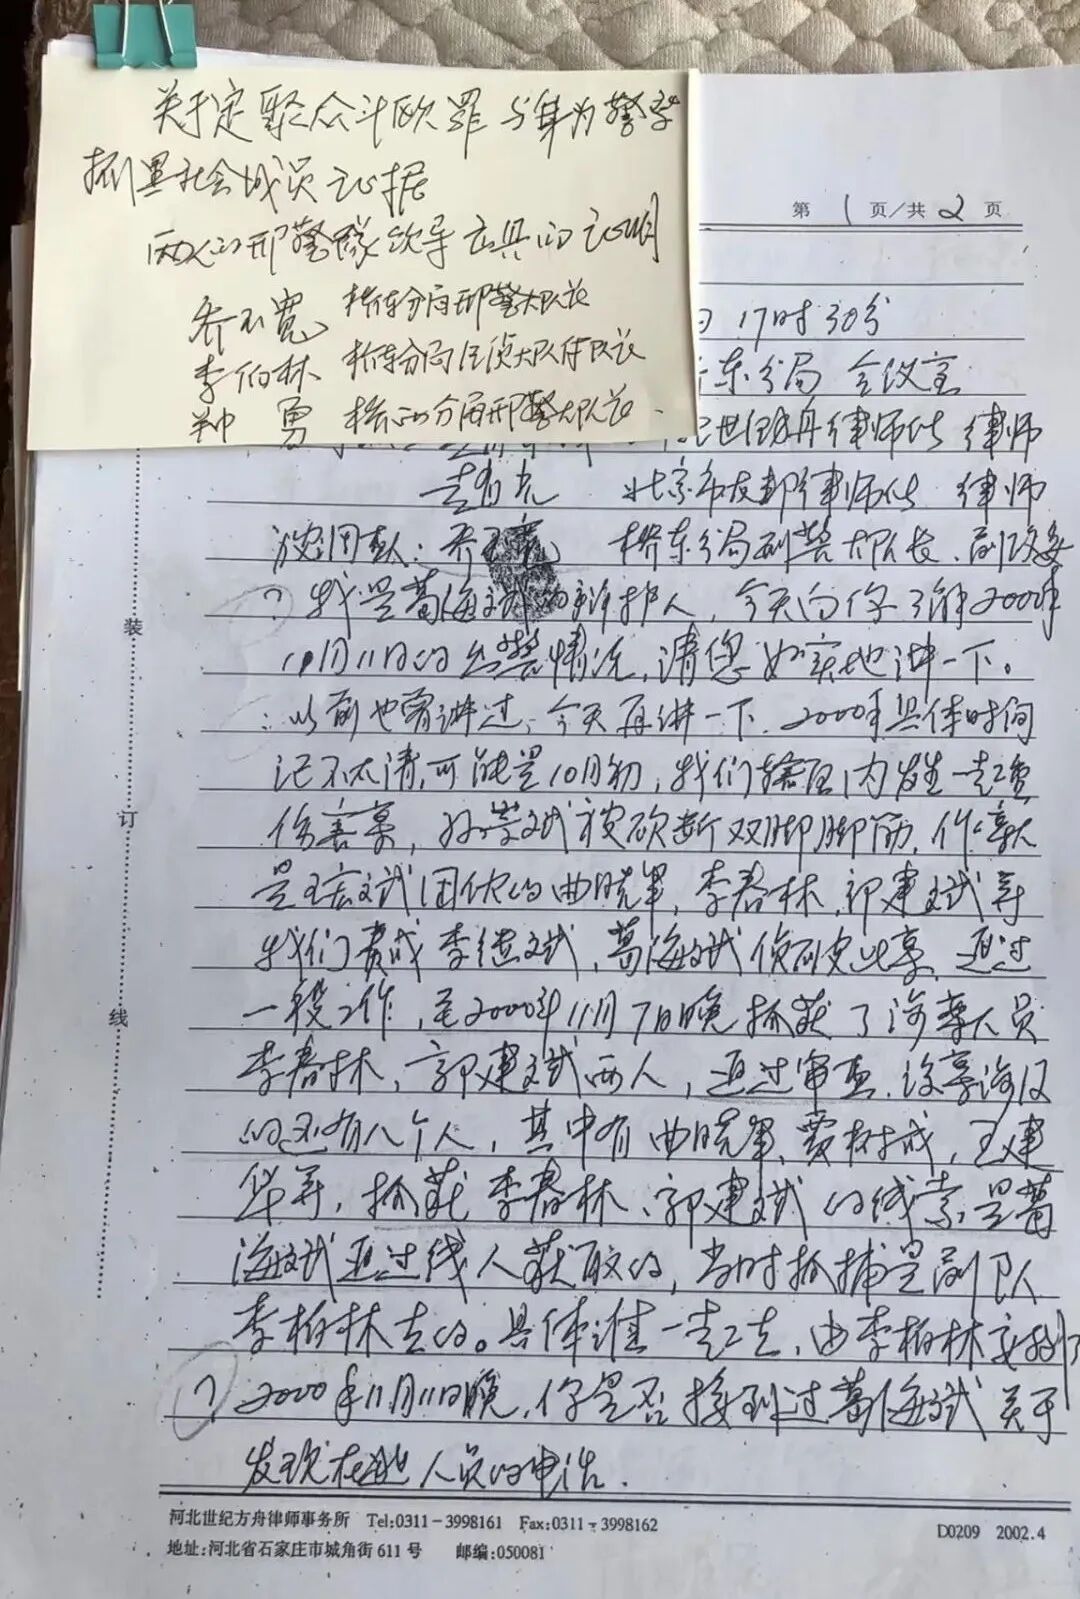 关于定聚众斗殴罪与身为警察
抓黑社会成员证据
两人的刑警队领导出具的证明
乔不宽 桥东分局刑警大队长
李伯林 桥东分局任侦大队付队长
勇 桥西分局刑警大队长
第 1 页/共 2 页
17时30分
东分局 会议室
世纪方舟律师所 律师
北京市 律师所 律师
被调查人: 乔不宽 桥东分局刑警大队长、副政委
? 我是葛海斌的辩护人，今天向你了解2000年
11月11日的出警情况，请您如实地讲一下。
: 以前也曾讲过，今天再讲一下，2000年具体时间
记不太清，可能是10月初，我们辖区内发生一起重
伤害案，孙荣斌被砍断双脚脚筋，作案人
是王宏斌团伙的曲晓军，李春林，郭建斌等
我们责成李继斌，葛海斌侦破此案，通过
一段工作，至2000年11月7日晚抓获了涉案人员
李春林、郭建斌两人，通过审查，该案涉及
的还有八个人，其中有曲晓军、贾树成，王建
华等，抓获李春林、郭建斌的线索是葛
海斌通过线人获取的，当时抓捕是副队
李柏林去的。具体谁一起去，由李柏林安排了
? 2000年11月11日晚，你是否接到过葛海斌关于
发现在逃人员的电话．
装
订
线
河北世纪方舟律师事务所 Tel:0311-3998161 Fax:0311-3998162
D0209 2002.4
地址:河北省石家庄市城角街611号 邮编:050081